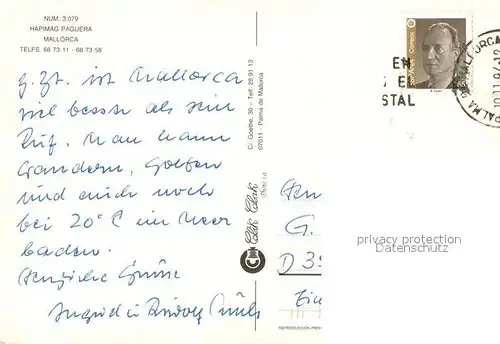 NUM. 3.079
HAPIMAG PAGUERA
MALLORCA
TELFS. 68 73 11 - 68 73 58
z. Zt. ist Mallorca
viel besser als sein
Ruf. Man kann
wandern, Golfen
und auch noch
bei 20° C im Meer
baden.
Herzliche Grüße
Ingrid u. Rudolf
C/. Goethe, 30 – Telf. 28 91 13
07011 - Palma de Mallorca
Clik Clak
REPRODUCCION PROH
Correos
EN
S E
STAL
PALMA DE MALLORCA
G.
D 35
privacy protection
Datenschutz